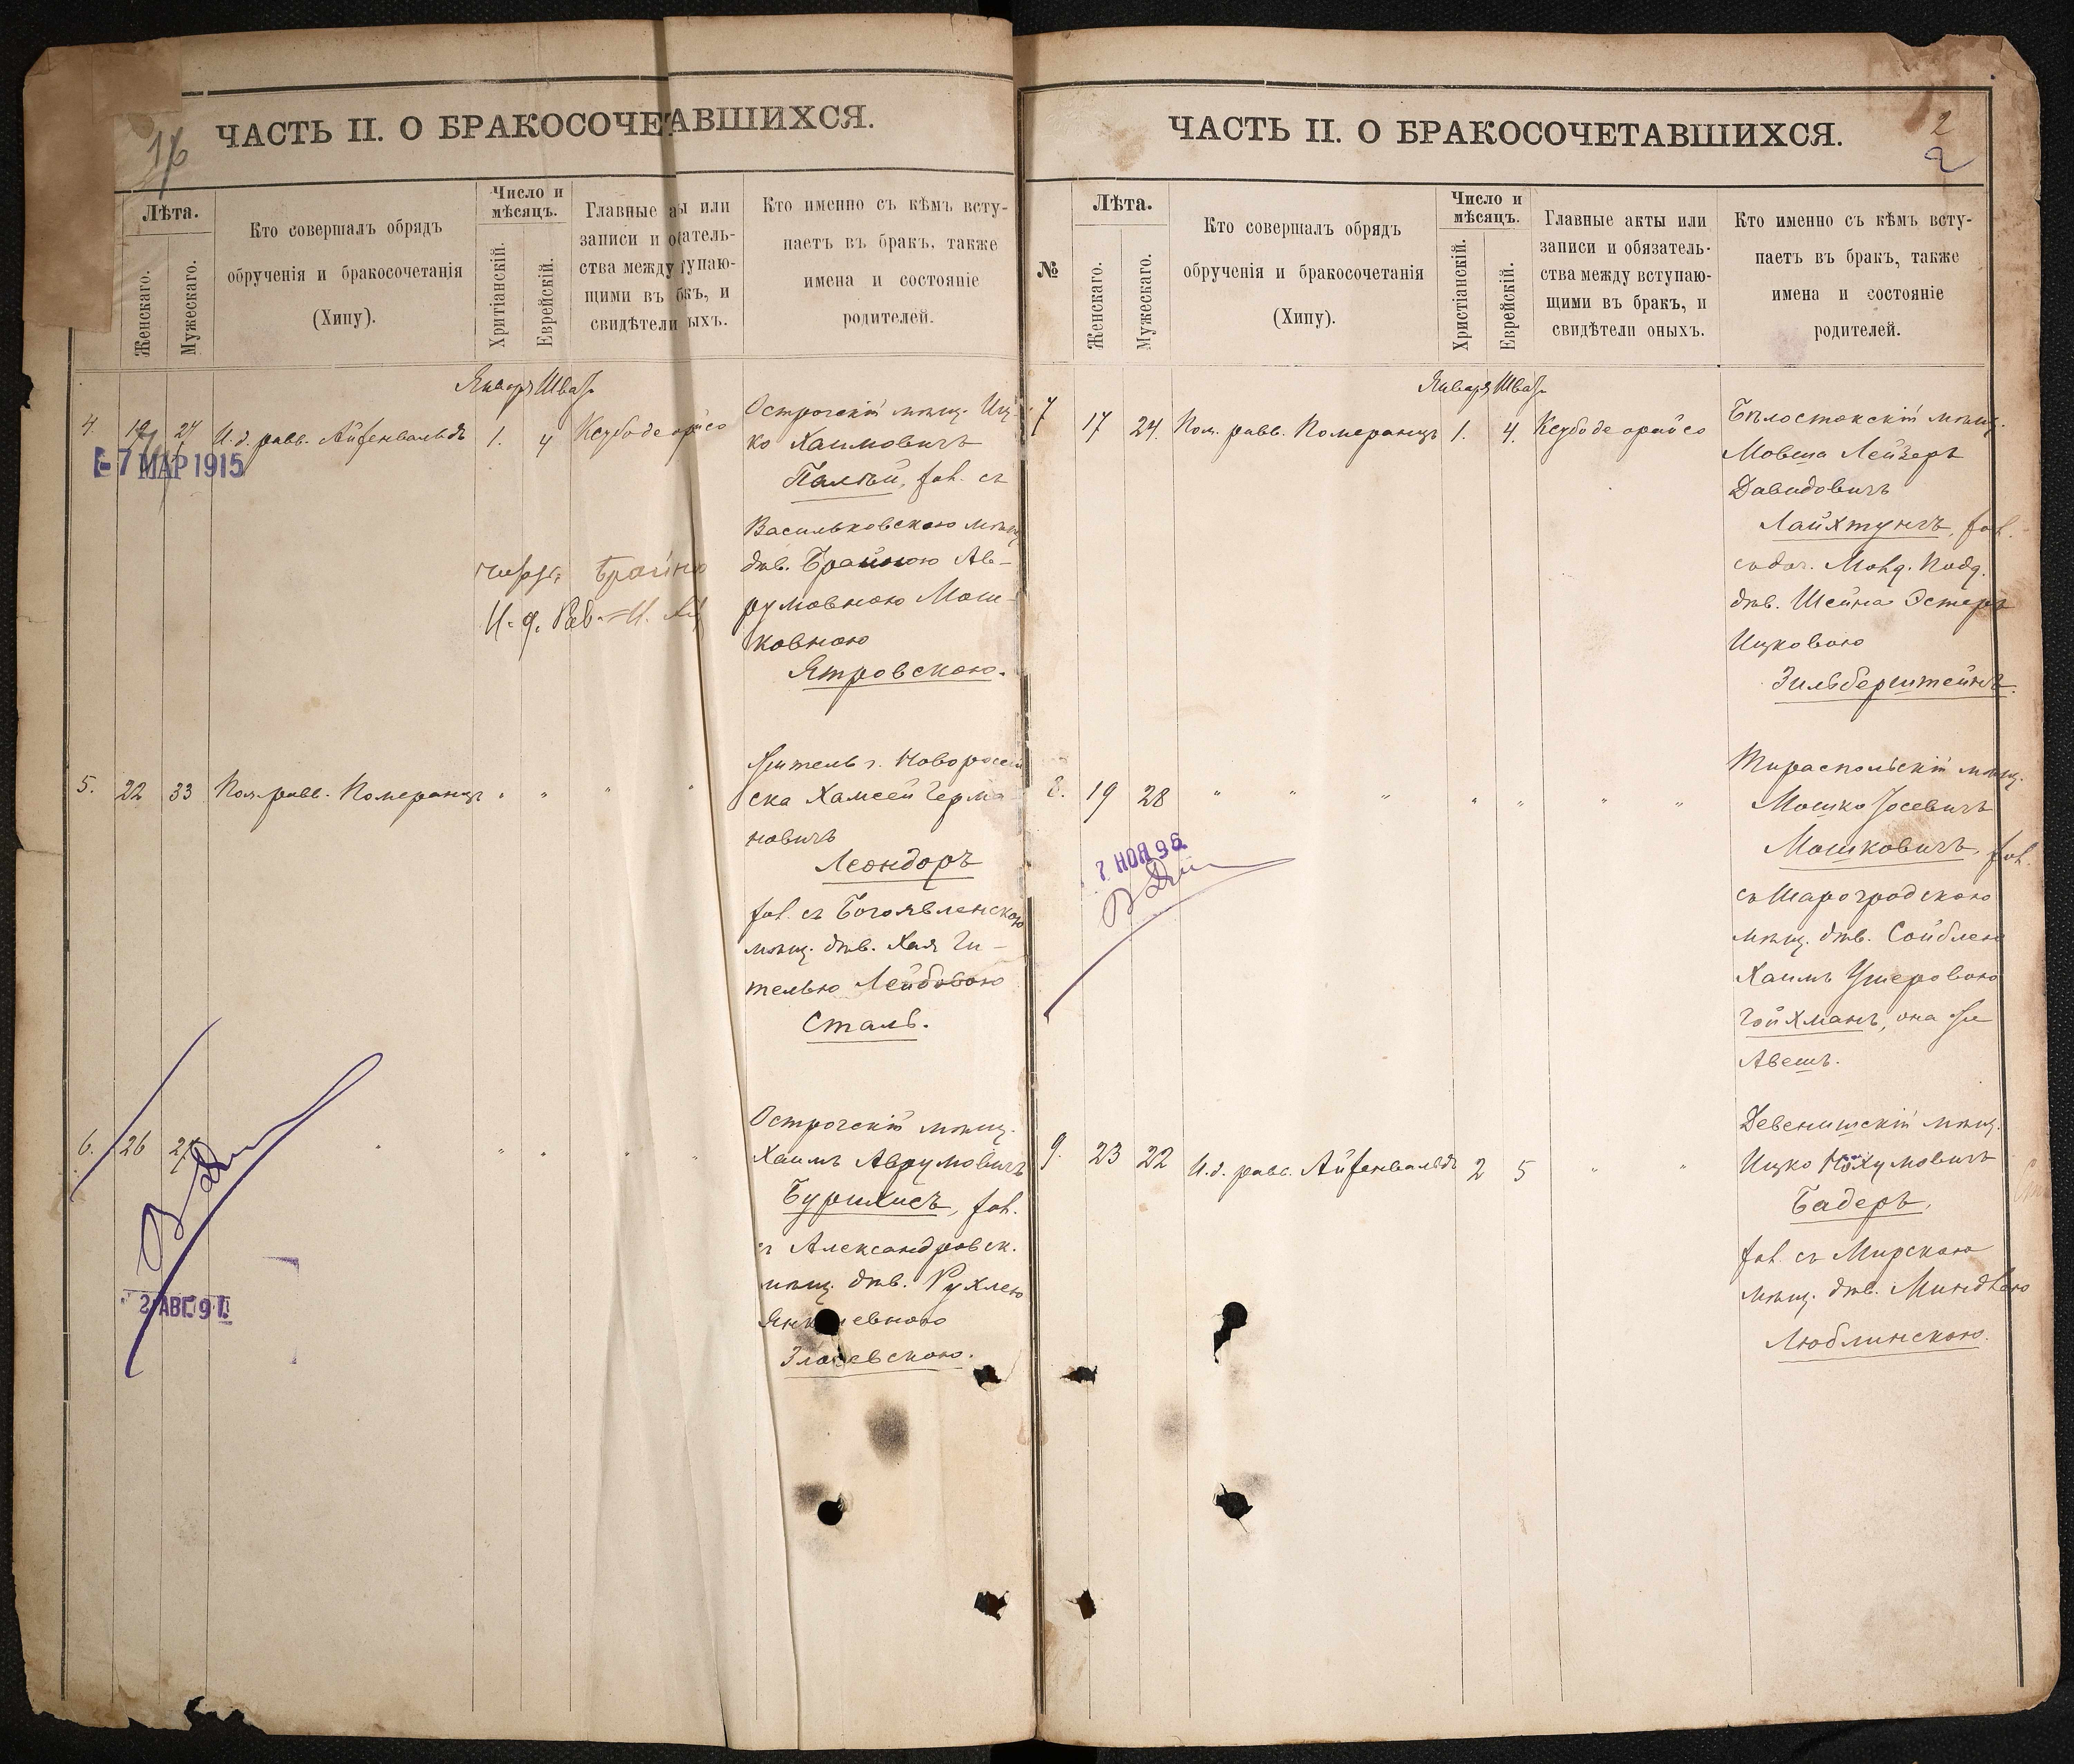 1/6
ЧАСТЬ II. О БРАКОСОЧЕТАВШИХСЯ.
Лѣта.
Женскаго.
Мужескаго.
Кто совершалъ обрядъ
обрученія и бракосочетанія
(Хипу).
Число и
мѣсяцъ.
Хритіанскій.
Еврейскій.
Главные а ы или
записи и о атель-
ства между тупаю-
щими въ б къ, и
свидѣтели ыхъ.
Кто именно съ кѣмъ всту-
паетъ въ бракъ, также
имена и состояніе
родителей.
Января Шват
4. 19 24 И. д. равв. Айзенвальдъ 1. 4
Острогскій мѣщ. Иц-
ко Хаимовичъ
Палѣй, хол. съ
Васильковскою мѣщ.
дѣв. Брайною Ав-
румовною Мош-
ковною
Ятровскою.
7 МАР 1915
Брайна
И. д. Рав.
5. 22 33 Пом. равв. Померанцъ " " " "
Житель г. Новоросій
ска Хамсей Герма
новичъ
Леондоръ
хол. съ Богоявленскою
мѣщ. дѣв. Хая Ги-
телью Лейбовою
Сталь.
6. 26 27 " " " " "
Острогскій мѣщ.
Хаимъ Аврумовичъ
Буршкисъ, хол.
съ Александровск.
мѣщ. дѣв. Рухлею
евною
евскою.
2 АВГ. 9
ЧАСТЬ II. О БРАКОСОЧЕТАВШИХСЯ.
2
2
№
Лѣта.
Женскаго.
Мужескаго.
Кто совершалъ обрядъ
обрученія и бракосочетанія
(Хипу).
Число и
мѣсяцъ.
Христіанскій.
Еврейскій.
Главные акты или
записи и обязатель-
ства между вступаю-
щими въ бракъ, и
свидѣтели оныхъ.
Кто именно съ кѣмъ всту-
паетъ въ бракъ, также
имена и состояніе
родителей.
Января Шват
7 17 24. Пом. равв. Померанцъ 1. 4. Ксубо де орайсо
Бѣлостокскій мѣщ.
Мовша Лейзеръ
Давидовичъ
Лайхтунгъ, хол.
дѣв. Шейна Эстеръ
Ицковою
Зильберштейнъ.
8. 19 28 " " " " " " "
Тираспольскій мѣщ.
Мошко Іосевичъ
Мошковичъ, хол.
съ Шарогродскою
мѣщ. дѣв. Сойблею
Хаимъ Ушеровою
Гойхманъ, она же
Авешъ.
7 НОЯ 96
9. 23 22 И. д. равв. Айзенвальдъ 2 5 " "
Девенишскій мѣщ.
Ицко Нохумовичъ
Бадеръ,
хол. съ Мирскою
мѣщ. дѣв. Миндлею
Люблинскою.